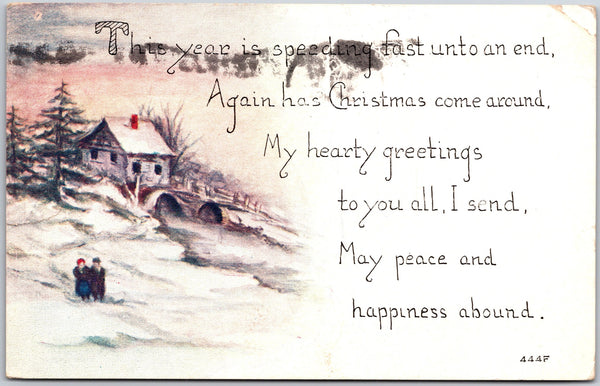 This year is speeding fast unto an end,
Again has Christmas come around,
My hearty greetings
to you all, I send,
May peace and
happiness abound.
444F